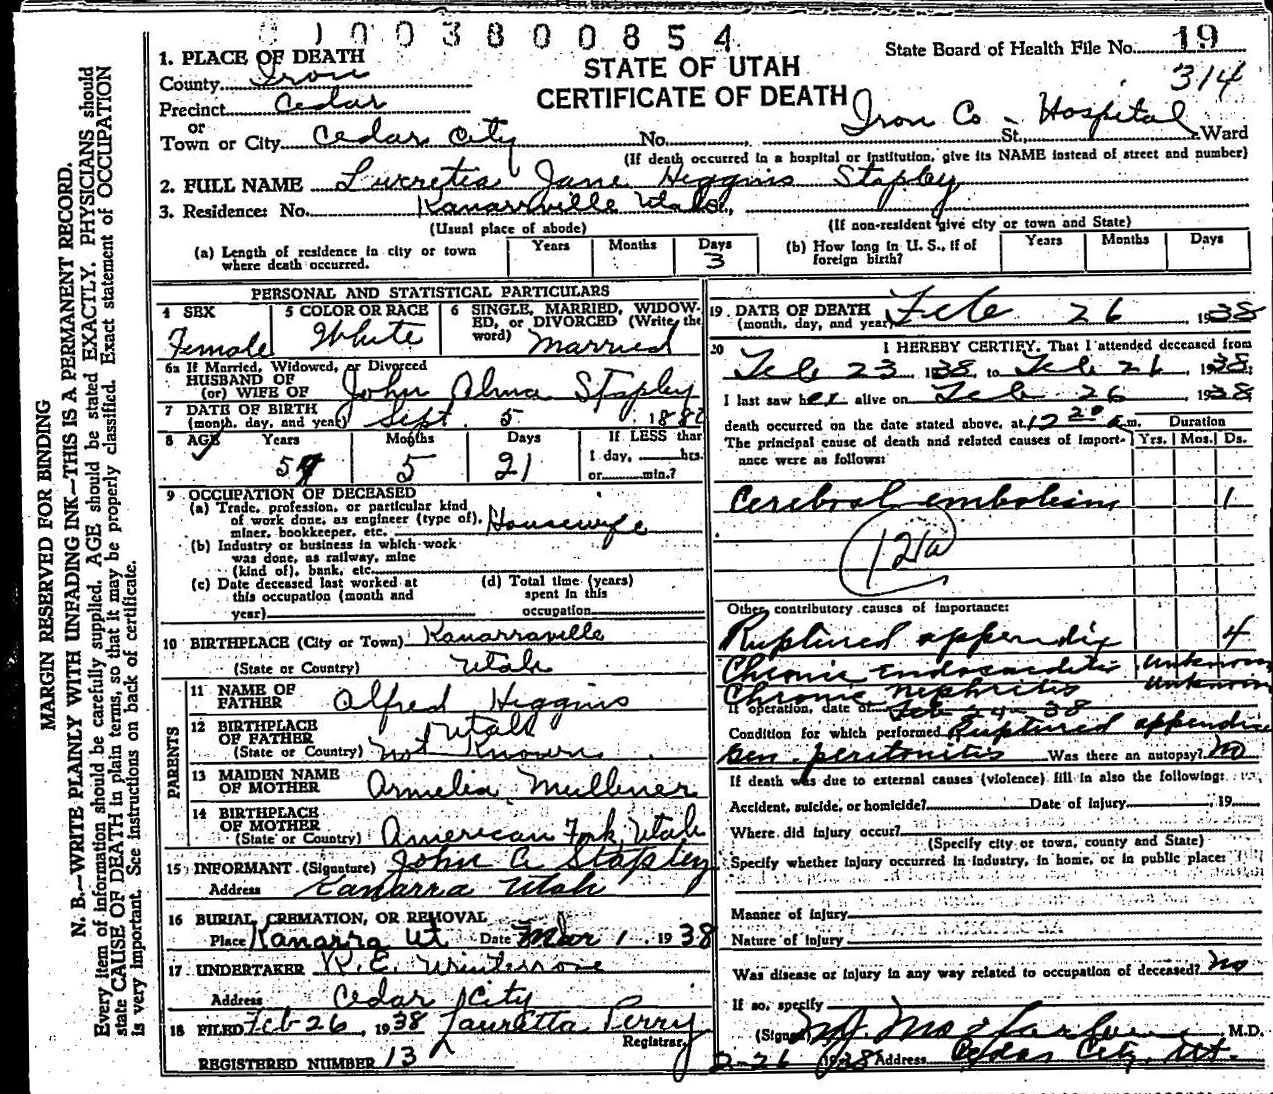 1003800854
State Board of Health File No. 19
314
STATE OF UTAH
CERTIFICATE OF DEATH
1. PLACE OF DEATH
County Iron
Precinct Cedar
or
Town or City Cedar City No. Iron Co - Hospital St., Ward
(If death occurred in a hospital or institution, give its NAME instead of street and number)
2. FULL NAME Lucretia Jane Higgins Stapley
3. Residence: No. Kanarraville Utah St.,
(Usual place of abode) (If non-resident give city or town and State)
(a) Length of residence in city or town where death occurred. Years Months Days 3
(b) How long in U. S., if of foreign birth? Years Months Days
PERSONAL AND STATISTICAL PARTICULARS
4 SEX Female
5 COLOR OR RACE White
6 SINGLE, MARRIED, WIDOWED, or DIVORCED (Write the word) Married
6a If Married, Widowed, or Divorced
HUSBAND OF
(or) WIFE OF John Alma Stapley
7 DATE OF BIRTH
(month, day, and year) Sept. 5 1880
8 AGE Years Months Days If LESS than
57 5 21 1 day, hrs.
or min.?
9 OCCUPATION OF DECEASED
(a) Trade, profession, or particular kind
of work done, as engineer (type of),
miner, bookkeeper, etc. Housewife
(b) Industry or business in which work
was done, as railway, mine
(kind of), bank, etc.
(c) Date deceased last worked at
this occupation (month and
year)
(d) Total time (years)
spent in this
occupation
10 BIRTHPLACE (City or Town) Kanarraville
(State or Country) Utah
PARENTS
11 NAME OF
FATHER Alfred Higgins
12 BIRTHPLACE
OF FATHER Utah
(State or Country) not Known
13 MAIDEN NAME
OF MOTHER Armelia Mulliner
14 BIRTHPLACE
OF MOTHER
(State or Country) American Fork Utah
15 INFORMANT (Signature) John A. Stapley
Address Kanarra Utah
16 BURIAL, CREMATION, OR REMOVAL
Place Kanarra Ut Date Mar 1, 1938
17 UNDERTAKER R. E. Winterrose
Address Cedar City
18 FILED Feb-26, 1938 Lauretta Perry
Registrar
REGISTERED NUMBER 13
19 DATE OF DEATH
(month, day, and year) Feb 26, 1938
20 I HEREBY CERTIFY, That I attended deceased from
Feb 23 1938, to Feb 26, 1938;
I last saw her alive on Feb 26 1938
death occurred on the date stated above, at 12 20 a m. Duration
The principal cause of death and related causes of importance were as follows: Yrs. Mos. Ds.
Cerebral embolism 1
Other contributory causes of importance:
Ruptured appendix 4
Chronic endocarditis unknown
Chronic nephritis unknown
If operation, date of Feb-24-38
Condition for which performed Ruptured appendix
Gen. peritonitis Was there an autopsy? No
If death was due to external causes (violence) fill in also the following:
Accident, suicide, or homicide? Date of injury , 19
Where did injury occur?
(Specify city or town, county and State)
Specify whether injury occurred in industry, in home, or in public place:
Manner of injury
Nature of injury
Was disease or injury in any way related to occupation of deceased? No
If so, specify
(Signed) M.D.
2-26 1938 Address Cedar City, Ut.
MARGIN RESERVED FOR BINDING
N. B.—WRITE PLAINLY WITH UNFADING INK—THIS IS A PERMANENT RECORD.
Every item of information should be carefully supplied. AGE should be stated EXACTLY. PHYSICIANS should
state CAUSE OF DEATH in plain terms, so that it may be properly classified. Exact statement of OCCUPATION
is very important. See instructions on back of certificate.